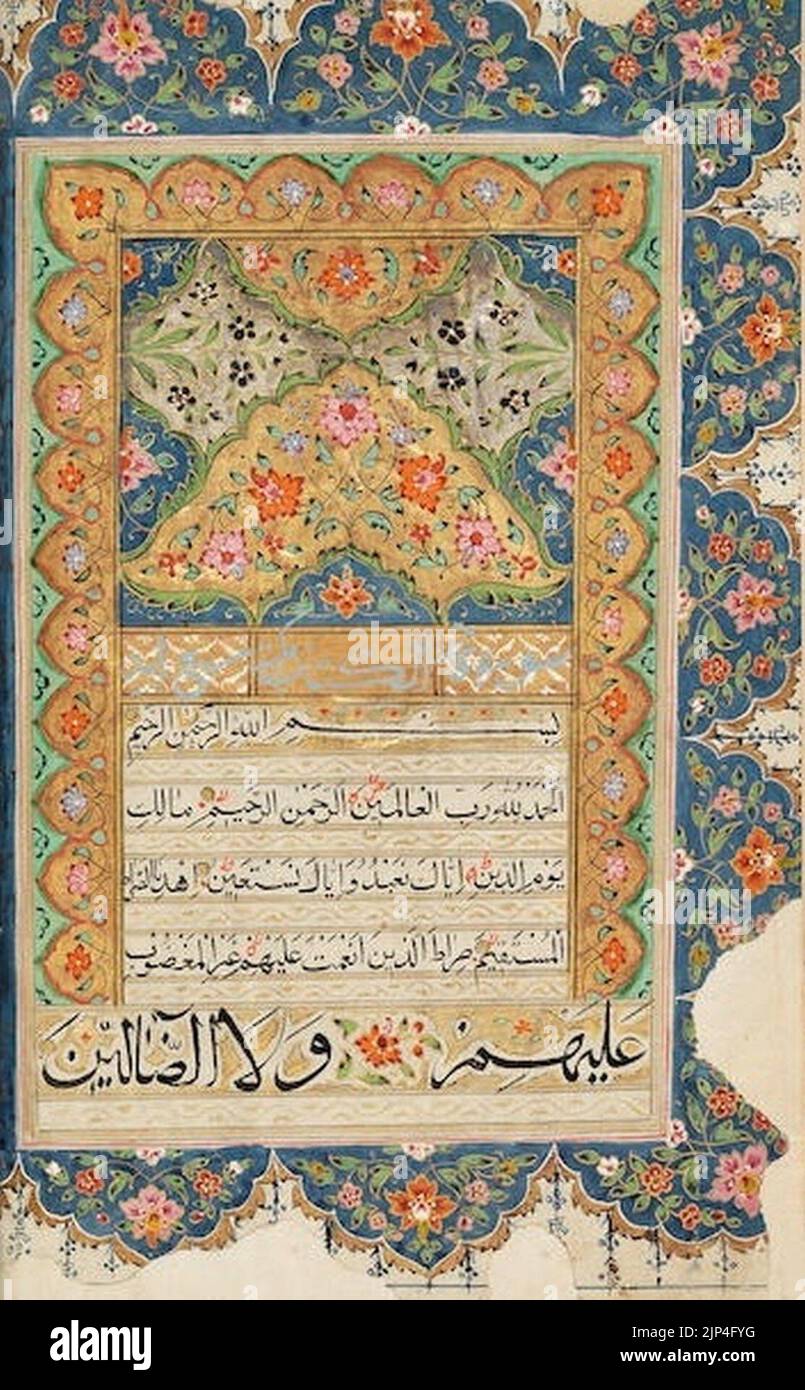 بسم الله الرحمن الرحيم
الحمد لله رب العالمين الرحمن الرحيم مالك
يوم الدين اياك نعبد واياك نستعين اهدنا الصراط
المستقيم صراط الذين انعمت عليهم غير المغضوب
عليهم ولا الضالين
alamy
Image ID: 2JP4FYG
www.alamy.com